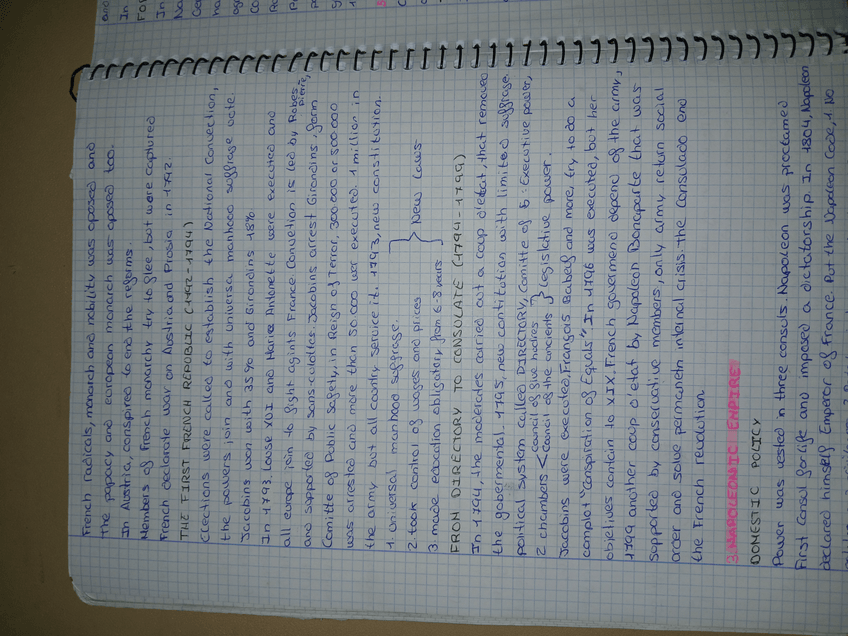 French radicals, monarch and nobility was oposed and
The papacy and european monarch was oposed too.
In Austria, conspired to end the reforms.
Members of French monarchy try to flee, but were captured
French declarate war on Austria and Prussia in 1792.
THE FIRST FRENCH REPUBLIC (1792-1794)
Elections were called to establish the National Convection,
the powers join and with universa manhood suffrage vote.
Jacobins won with 35% and Girondins 18%
In 1793, Louse XVI and Mariee Antonette were executed and
all europe join to fight agints France. Convetion is led by Robespierre,
and supported by sans-culottes. Jacobins arrest Girondins, form
Comitte of Public Safety, in Reign of Terror, 300.000 or 500.000
was arrested and more than 50.000 wor executed. 1 million in
the army but all country service it. 1793, new constitution.
1. universal manhood suffrage.
2. took control of wages and prices } New Laws
3. made education obligatory from 6-8 years
FROM DIRECTORY TO CONSULATE (1794-1799)
In 1794, the moderates carried out a coup d'etat, that removed
the gobermental. 1795, new contitution with limited suffrage.
political system called DIRECTORY, Comitte of 5: Executive power,
2 chambers < council of five hudres
council of the ancients } legislctive power.
Jacobins were executed, François Babeuf and more, try to do a
complot "Conspiration of Equals" In 1796 was executed, but her
objetives contain to XIX. French governend depend of the army,
1799 another coup d'etat by Napoleon Bonaparte that was
supported by conservative members, only army return social
order and solve permaneth internal crisis. the Consulado end
the French revolution.
3. NAPOLEONIC EMPIRE
DOMESTIC POLICY
Power was vested in three consuls. Napoleon was proclamed
First Consul for life and imposed a dictatorship. In 1804, Napoleon
declared himself Emperor of France. Put the Napoleon Code, 1 No